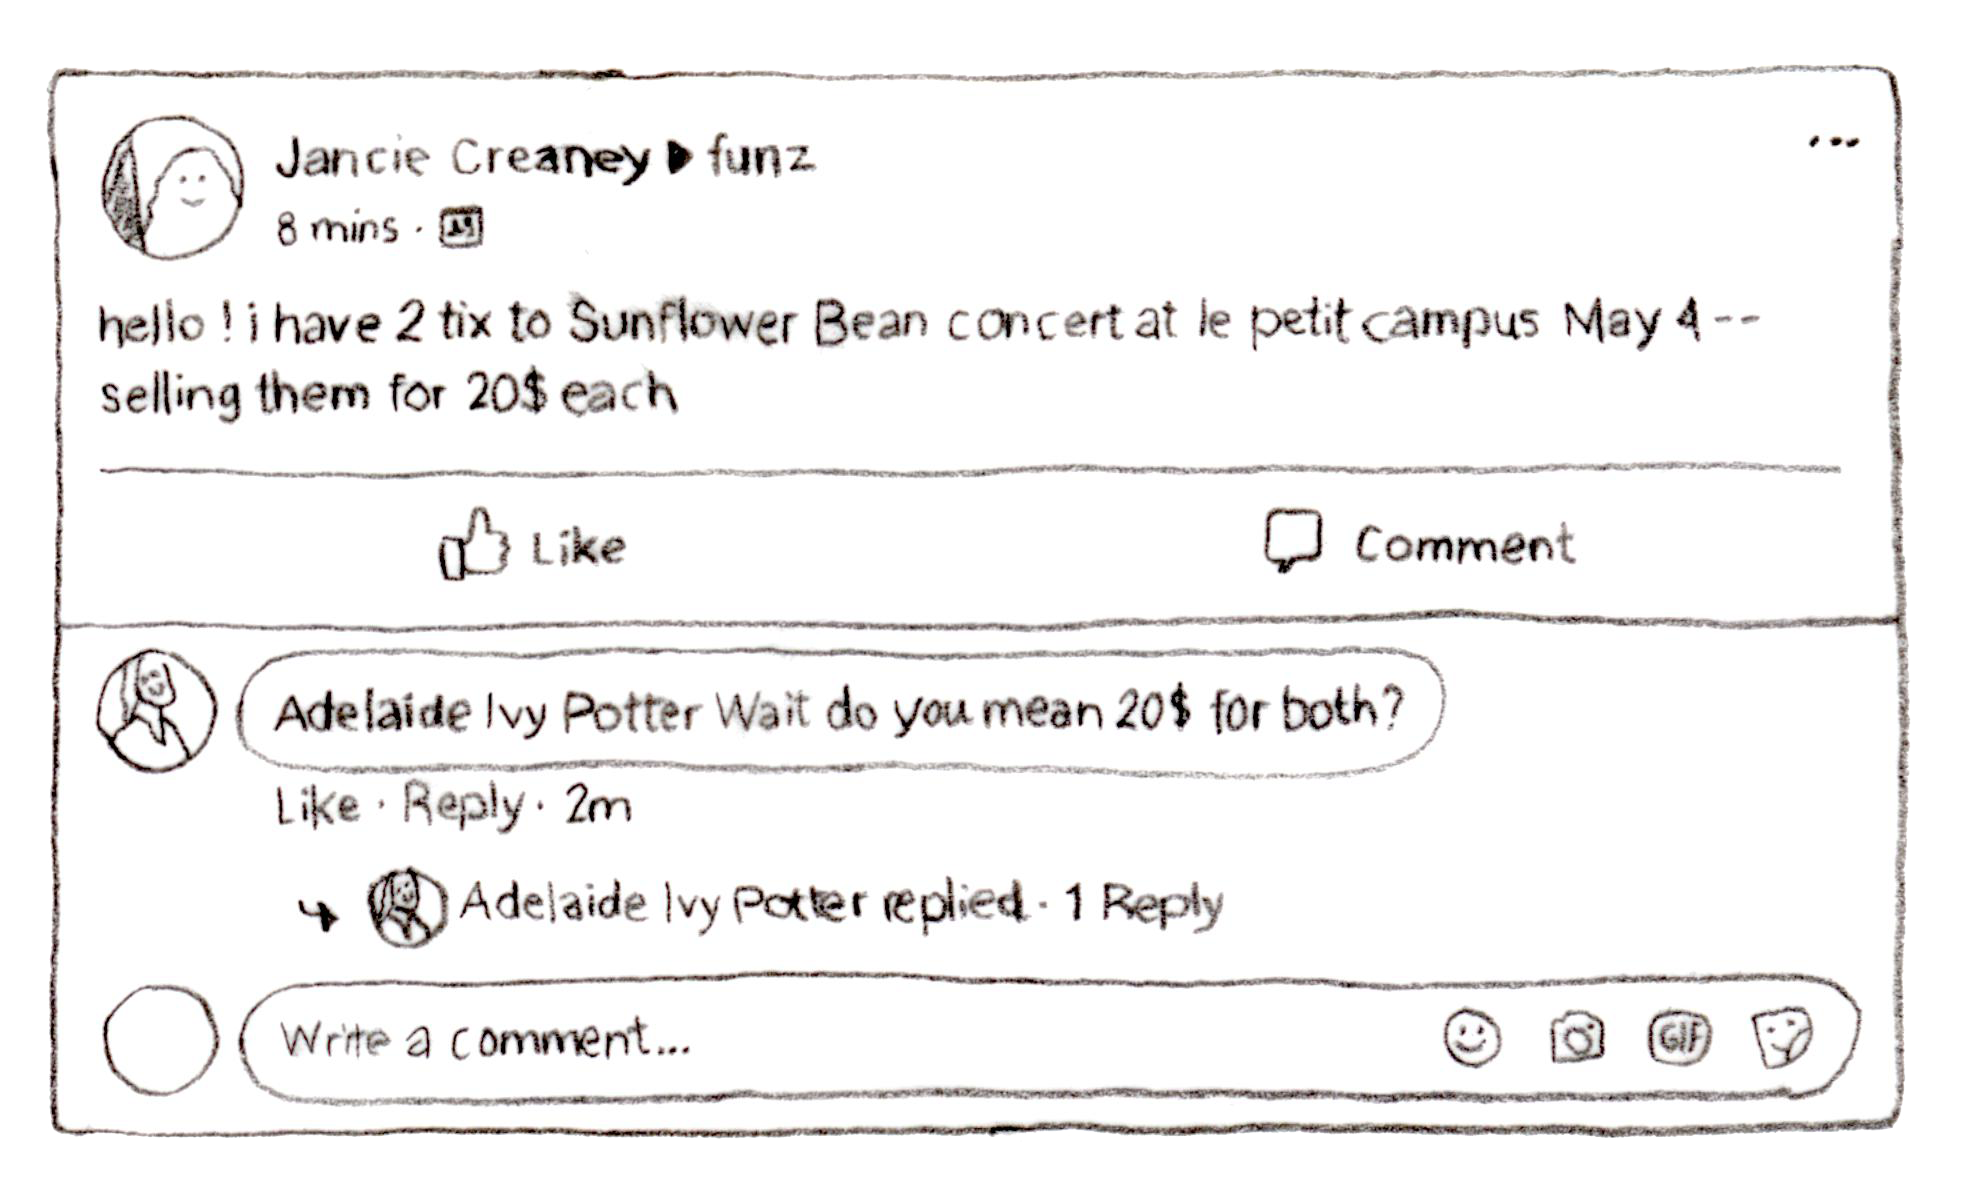 Jancie Creaney ▶ funz
...
8 mins ·
hello ! i have 2 tix to Sunflower Bean concert at le petit campus May 4 --
selling them for 20$ each
Like
Comment
Adelaide Ivy Potter Wait do you mean 20$ for both?
Like · Reply · 2m
Adelaide Ivy Potter replied · 1 Reply
Write a comment...
GIF